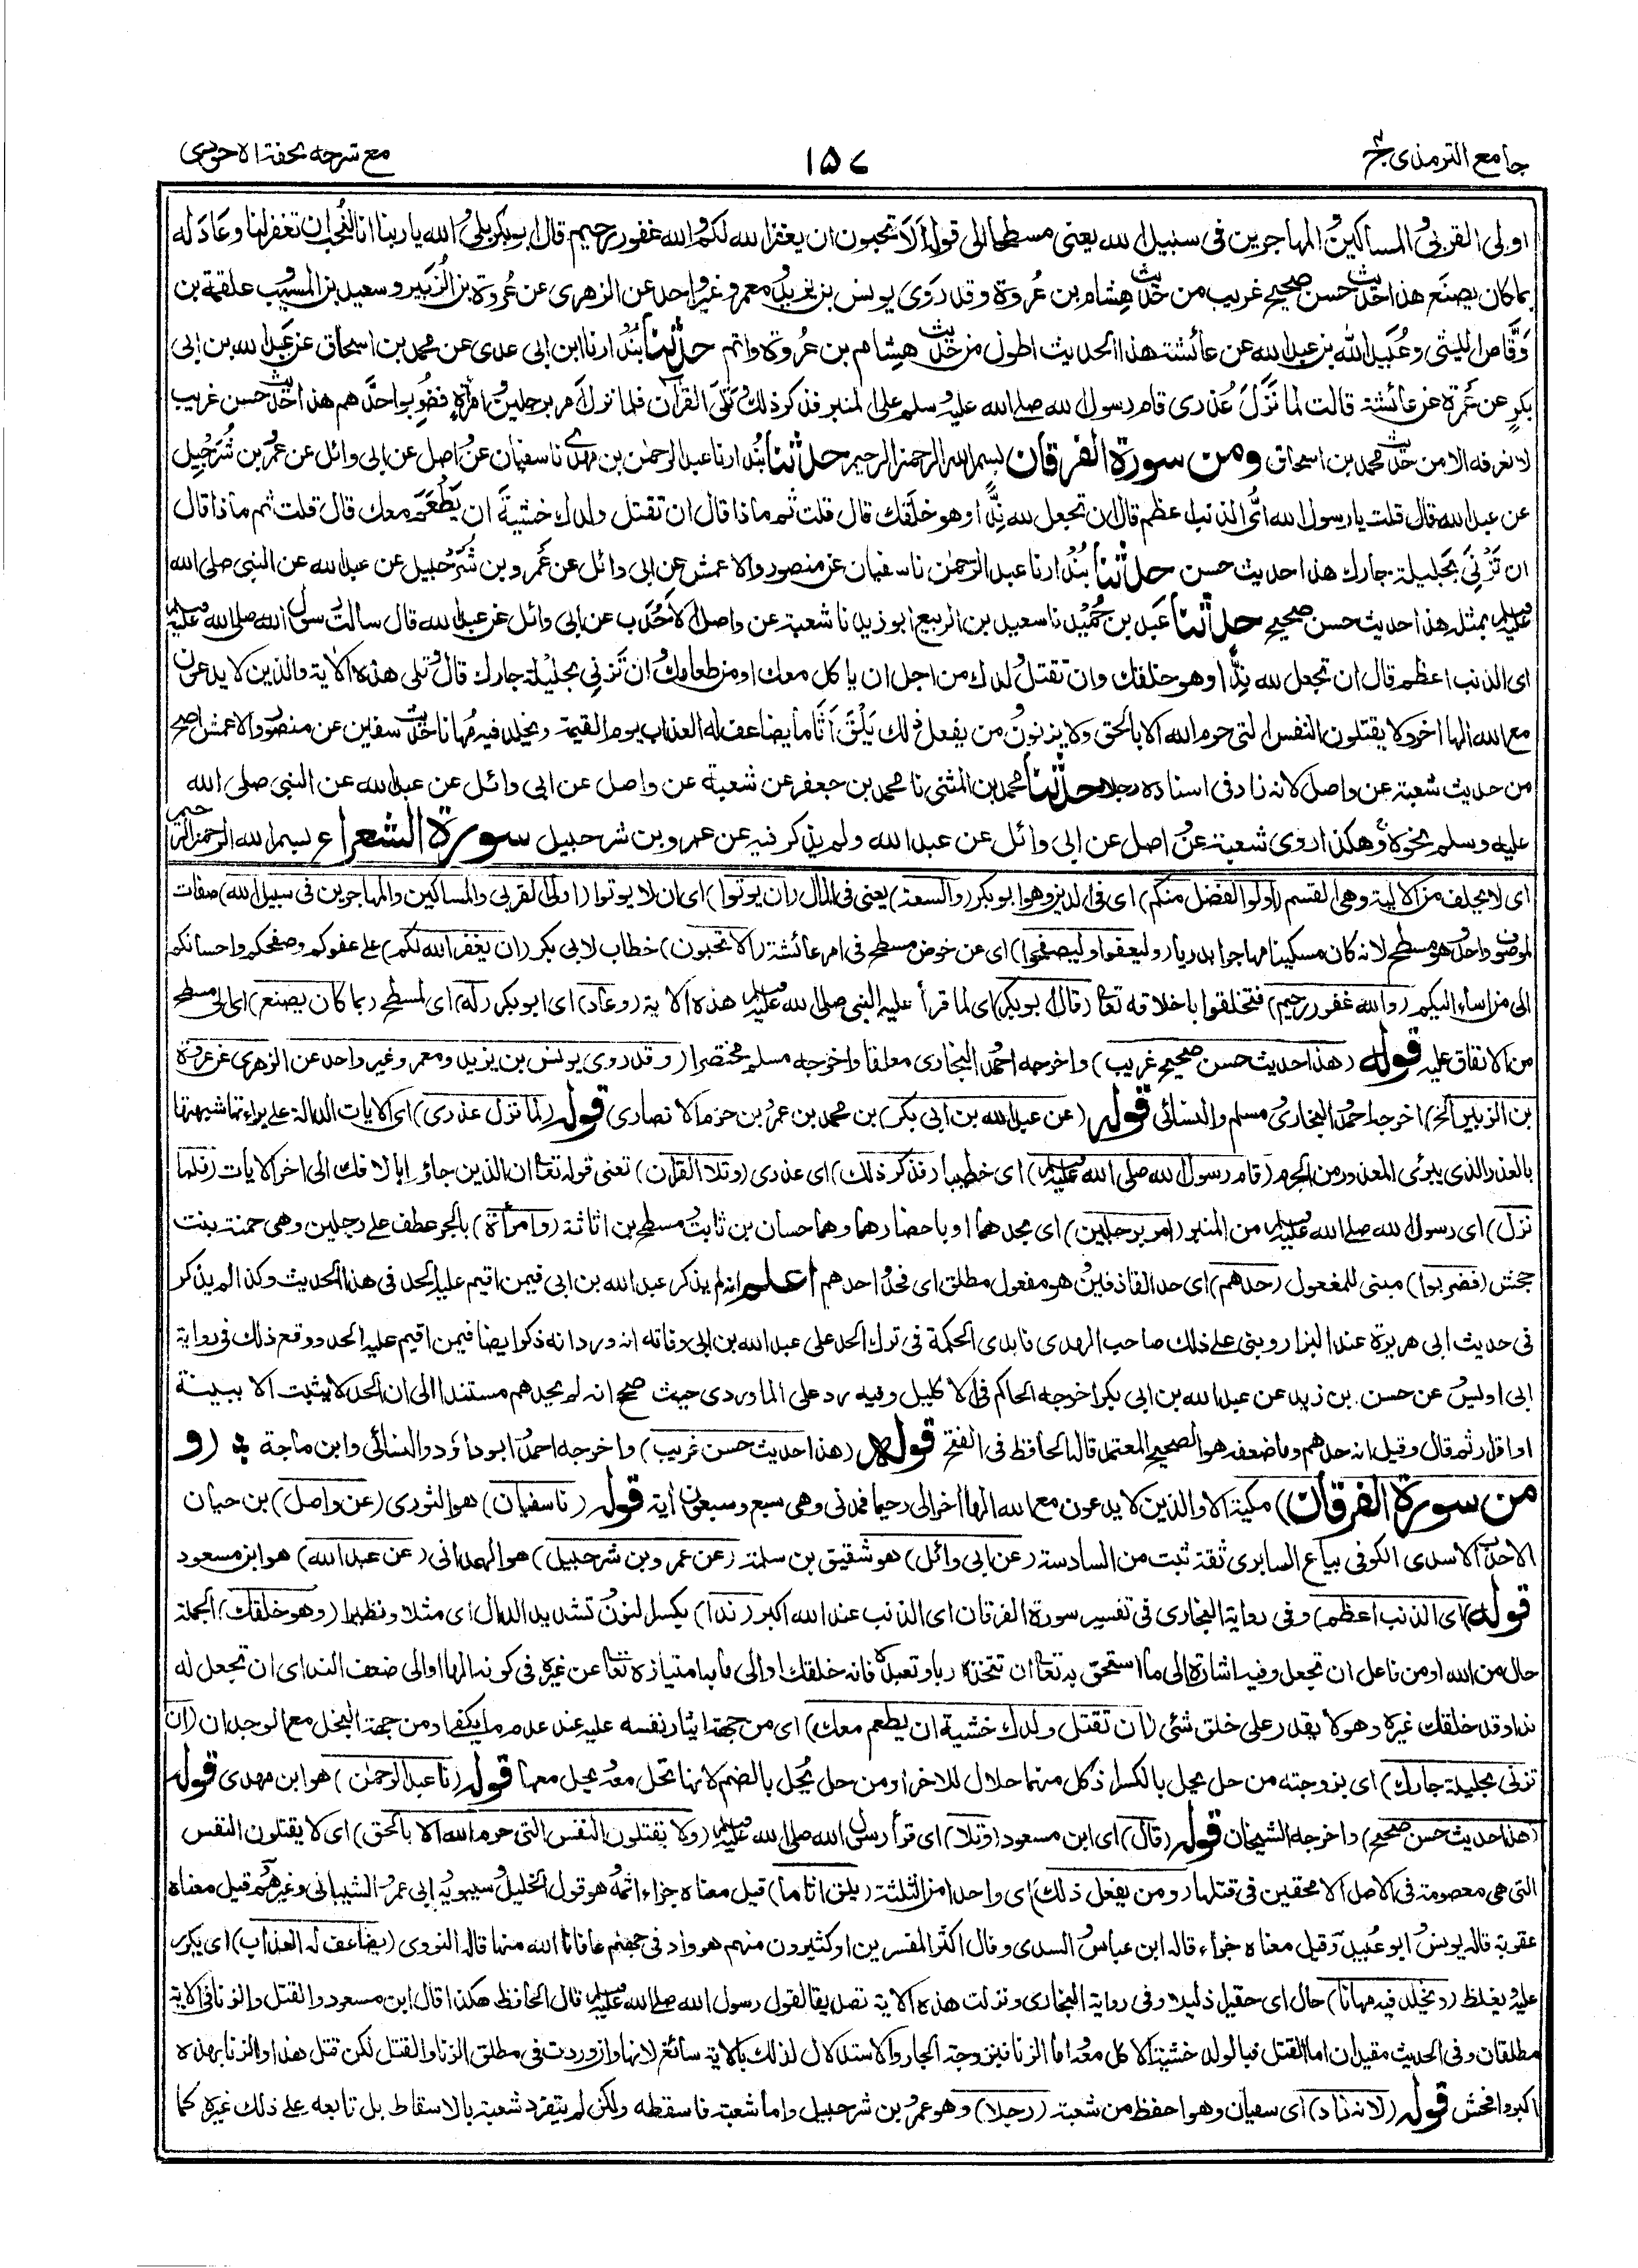 جامع الترمذى ج٤
١٥٧
مع شرحه تحفة الاحوذى
اولى القربى والمساكين والمهاجرين فى سبيل الله يعنى مسطحا الى قوله اَلَا تحبون ان يغفر الله لكم والله غفور رحيم قال ابو بكر بلى والله يا ربنا انا لنُحب ان تغفر لنا وعَادَ له
بما كان يصنَع هذا حديث حسن صحيح غريب من حديث هِشام بن عُروة وقد رَوَى يونس بن يزيد ومعمر وغير واحد عن الزهرى عن عُروة بن الزُبَير وسعيد بن المسيّب وعلقمة بن
وَقَّاص الليثى وعُبَيد الله بن عبد الله عن عائشة هذا الحديث اطول من حديث هِشام بن عُروة واتم حدثنا بُنْدارنا ابن ابى عدى عن محمد بن اسحاق عن عَبد الله بن ابى
بكر عن عَمرة عن عائشة قالت لما نَزَلَ عُذرى قام رسول الله صلى الله عليه وسلم على المنبر فذكر ذلك وتَلَى القرآن فلما نزل اَمر برجلين وامرأة فضُرِبوا حدَّهم هذا حديث حسن غريب
لا نعرفه الا من حديث محمد بن اسحاق ومن سورة الفرقان بسم الله الرحمن الرحيم حدثنا بُندارنا عبد الرحمن بن مهدى ناسفيان عن واصل عن ابى وائل عن عَمرو بن شُرَحْبِيل
عن عبد الله قال قلت يا رسول الله اىُّ الذنب اعظم قال ان تجعل لله نِدًّا وهو خلَقك قال قلت ثم ماذا قال ان تقتل ولدك خشيةَ ان يَطْعَمَ معك قال قلت ثم ماذا قال
ان تَزْنِىَ بحَلِيلة جارك هذا حديث حسن حدثنا بُنْدارنا عبد الرحمن ناسفيان عن منصور والاعمش عن ابى وائل عن عَمرو بن شُرَحْبيل عن عبد الله عن النبى صلى الله
عليه وسلم بمثله هذا حديث حسن صحيح حدثنا عَبد بن حُمَيْد ناسعيد بن الربيع ابوزيد نا شعبة عن واصل الاَحْدَب عن ابى وائل عن عبد الله قال سالت رسول الله صلى الله عليه وسلم
اى الذنب اعظم قال ان تجعل لله نِدًّا وهو خلقك وان تقتل ولدك من اجل ان ياكل معك او من طعامك وان تَزنى بحليلة جارك قال وتلى هذه الآية والذين لا يدعون
مع الله الها اخر ولا يقتلون النفس التى حرم الله الا بالحق ولا يزنون ومن يفعل ذلك يَلْقَ اَثَاما يضاعف له العذاب يوم القيمة ويخلد فيه مُهانا حديث سفين عن منصور والاعمش اصح
من حديث شعبة عن واصل لانه زاد فى اسناده رجلا حدثنا محمد بن المثنى نا محمد بن جعفر عن شعبة عن واصل عن ابى وائل عن عبد الله عن النبى صلى الله
عليه وسلم نحوه وهكذا روى شعبة عن واصل عن ابى وائل عن عبد الله ولم يذكر فيه عن عمرو بن شرحبيل سورة الشعراء بسم الله الرحمن الرحيم
اى لا يحلف من الالية وهى القسم (اولوا الفضل منكم) اى فى الدين وهو ابو بكر (والسعة) يعنى فى المال (ان يوتوا) اى ان لا يوتوا (اولى القربى والمساكين والمهاجرين فى سبيل الله) صفات
لموصوف واحد وهو مسطح لانه كان مسكينا مهاجرا بدريا (وليعفوا وليصفحوا) اى عن خوض مسطح فى امر عائشة (الا تحبون) خطاب لابى بكر (ان يغفر الله لكم) على عفوكم وصفحكم واحسانكم
الى من اساء اليكم (والله غفور رحيم) فتخلقوا باخلاقه تعالى (قال ابو بكر) اى لما قرأ عليه النبى صلى الله عليه وسلم هذه الاية (وعاد) اى ابو بكر (له) اى لمسطح (بما كان يصنع) اى الى مسطح
من الانفاق عليه قوله (هذا حديث حسن صحيح غريب) واخرجه احمد والبخارى معلقا واخرجه مسلم مختصرا (وقد روى يونس بن يزيد ومعمر وغير واحد عن الزهرى عن عروة
بن الزبير الخ) اخرجه احمد والبخارى ومسلم والنسائى قوله (عن عبد الله بن ابى بكر) بن محمد بن عمرو بن حزم الانصارى قوله (لما نزل عذرى) اى الايات الدالة على براءتها شبهتها
بالعذر الذى يبرئ المعذور من الجرم (قام رسول الله صلى الله عليه وسلم) اى خطيبا (فذكر ذلك) اى عذرى (وتلا القرآن) تعنى قوله تعالى ان الذين جاؤا بالافك الى اخر الايات (فلما
نزل) اى رسول الله صلى الله عليه وسلم من المنبر (امر برجلين) اى بحدهما او باحضارهما وهما حسان بن ثابت ومسطح بن اثاثة (وامرأة) بالجر عطف على رجلين وهى حمنة بنت
جحش (فضربوا) مبنى للمفعول (حدهم) اى حد القاذفين وهو مفعول مطلق اى فحدوا حدهم اعلم انه لم يذكر عبد الله بن ابى فيمن اقيم عليه الحد فى هذا الحديث وكذا لم يذكر
فى حديث ابى هريرة عند البزار وبنى على ذلك صاحب الهدى فابدى الحكمة فى ترك الحد على عبد الله بن ابى وفاته انه ورد انه ذكر ايضا فيمن اقيم عليه الحد ووقع ذلك فى رواية
ابى اويس عن حسن بن زيد عن عبد الله بن ابى بكر اخرجه الحاكم فى الاكليل وفيه رد على الماوردى حيث صحح انه لم يحدهم مستندا الى ان الحد لا يثبت الا ببينة
او اقرار ثم قال وقيل انه حدهم وما ضعفه هو الصحيح المعتمد قاله الحافظ فى الفتح قوله (هذا حديث حسن غريب) واخرجه احمد وابو داؤد والنسائى وابن ماجة (و
من سورة الفرقان) مكية الا والذين لا يدعون مع الله الها اخر الى رحيما فمدنى وهى سبع وسبعون اية قوله (نا سفيان) هو الثورى (عن واصل) بن حيان
الاحدب الاسدى الكوفى بياع السابرى ثقة ثبت من السادسة (عن ابى وائل) هو شقيق بن سلمة (عن عمرو بن شرحبيل) هو الهمدانى (عن عبد الله) هو ابن مسعود
قوله (اى الذنب اعظم) وفى رواية البخارى فى تفسير سورة الفرقان اى الذنب عند الله اكبر (ندا) بكسر النون وتشديد الدال اى مثلا ونظيرا (وهو خلقك) الجملة
حال من الله او من فاعل ان تجعل وفيه اشارة الى ما استحق به تعالى ان تتخذه ربا وتعبده فانه خلقك او الى ما به امتيازه تعالى عن غيره فى كونه الها او الى ضعف الند اى ان تجعل له
ندا وقد خلقك غيره وهو لا يقدر على خلق شئ (ان تقتل ولدك خشية ان يطعم معك) اى من جهة ايثار نفسه عليه عند عدم ما يكفى او من جهة البخل مع الوجدان (ان
تزنى بحليلة جارك) اى بزوجته من حل يحل بالكسر اذ كل منهما حلال للاخر او من حل يحُل بالضم لانها تحل معه ويحل معها قوله (نا عبد الرحمن) هو ابن مهدى قوله
(هذا حديث حسن صحيح) واخرجه الشيخان قوله (قال) اى ابن مسعود (وتلا) اى قرأ رسول الله صلى الله عليه وسلم (ولا يقتلون النفس التى حرم الله الا بالحق) اى لا يقتلون النفس
التى هى معصومة فى الاصل الا محقين فى قتلها (ومن يفعل ذلك) اى واحدا من الثلثة (يلق اثاما) قيل معناه جزاء اثمه وهو قول الخليل وسيبويه وابى عمرو الشيبانى وغيرهم وقيل معناه
عقوبة قاله يونس وابو عبيدة وقيل معناه جزاء قاله ابن عباس والسدى وقال اكثر المفسرين او كثيرون منهم هو واد فى جهنم عافانا الله منها قاله النووى (يضاعف له العذاب) اى يكرر
عليه ويغلظ (ويخلد فيه مهانا) حال اى حقيرا ذليلا وفى رواية البخارى ونزلت هذه الاية تصديقا لقول رسول الله صلى الله عليه وسلم قال الحافظ هكذا قال ابن مسعود والقتل والزنا فى الاية
مطلقان وفى الحديث مقيدان اما القتل فبالولد خشية الاكل معه واما الزنا فبزوجة الجار والاستدلال لذلك بالاية سائغ لانها وان وردت فى مطلق الزنا والقتل لكن قتل هذا والزنا بهذه
اكبر وافحش قوله (لانه زاد) اى سفيان وهو احفظ من شعبة (رجلا) وهو عمرو بن شرحبيل واما شعبة فاسقطه ولكن لم يتفرد شعبة بالاسقاط بل تابعه على ذلك غيره كما